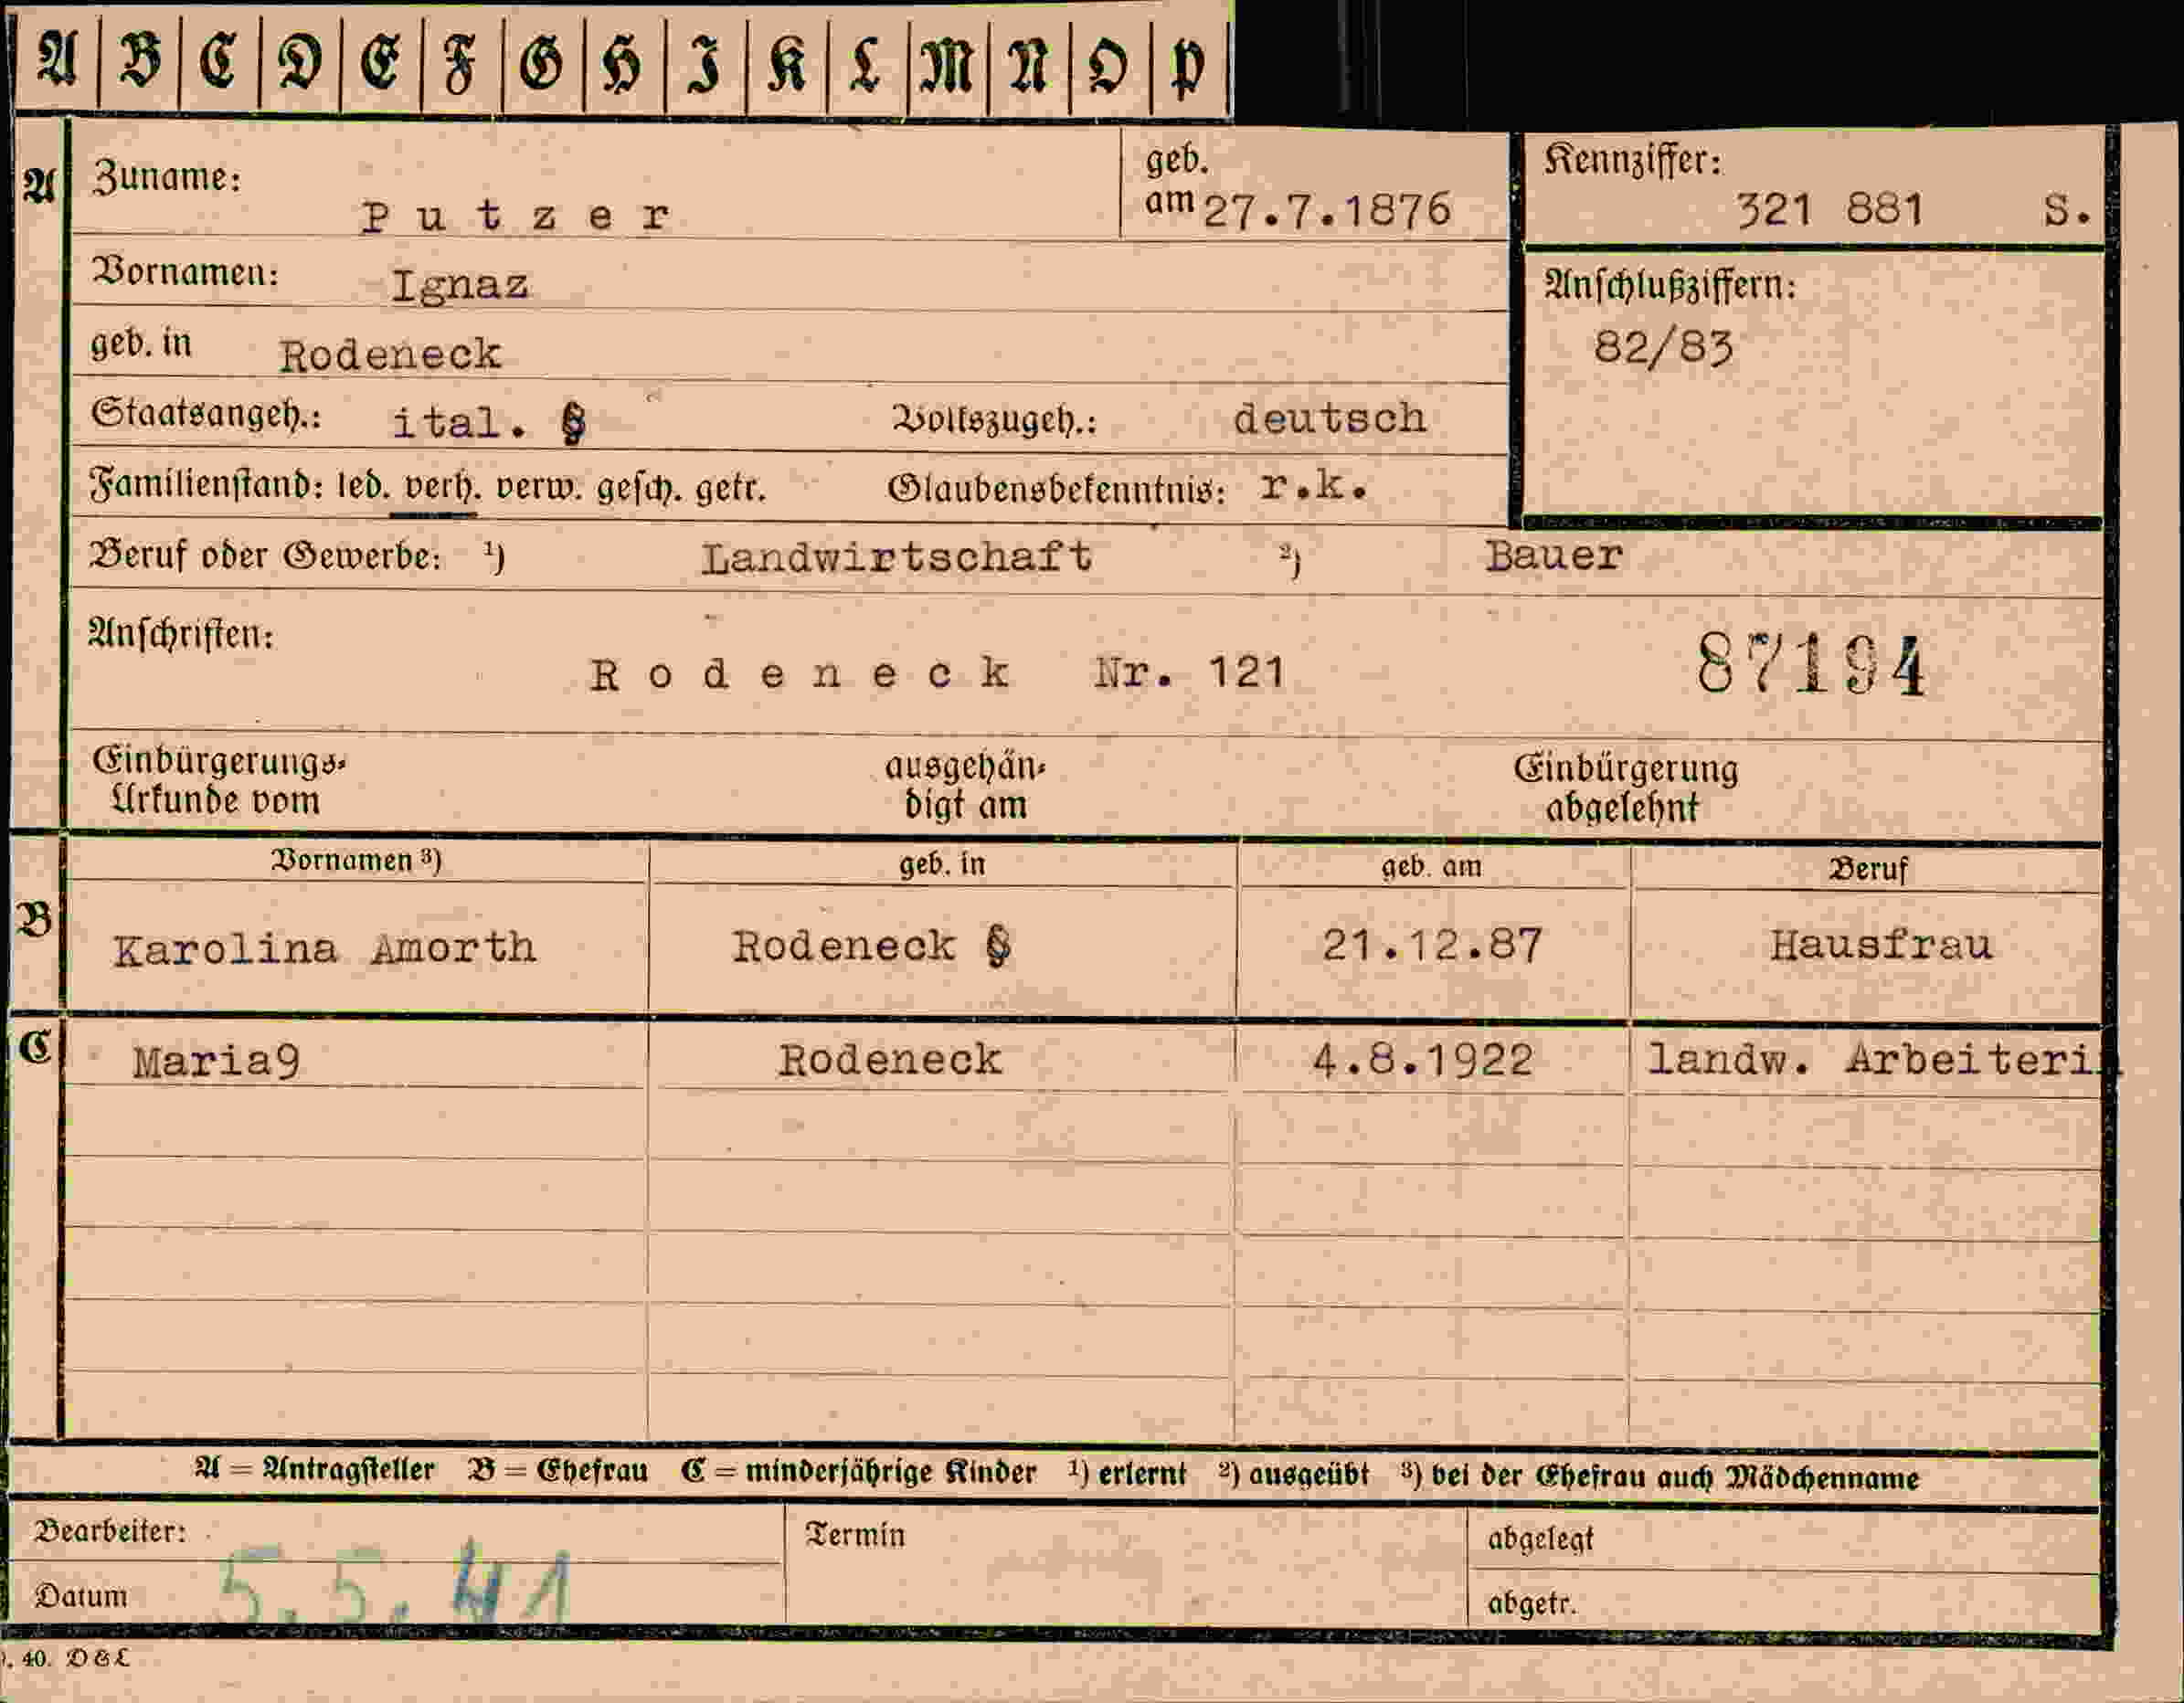 A B C D E F G H I K L M N O P
A
Zuname: Putzer
geb. am 27.7.1876
Kennziffer: 321 881 S.
Vornamen: Ignaz
Anschlußziffern:
82/83
geb. in Rodeneck
Staatsangeh.: ital. § Volkszugeh.: deutsch
Familienstand: led. verh. verw. gesch. getr. Glaubensbekenntnis: r.k.
Beruf oder Gewerbe: ¹) Landwirtschaft ²) Bauer
Anschriften:
Rodeneck Nr. 121
87194
Einbürgerungs-
Urkunde vom
ausgehän-
digt am
Einbürgerung
abgelehnt
Vornamen ³) geb. in geb. am Beruf
B Karolina Amorth Rodeneck § 21.12.87 Hausfrau
C Maria9 Rodeneck 4.8.1922 landw. Arbeiterin
A = Antragsteller B = Ehefrau C = minderjährige Kinder ¹) erlernt ²) ausgeübt ³) bei der Ehefrau auch Mädchenname
Bearbeiter: Termin abgelegt
Datum 5.5.41 abgetr.
. 40. D & L